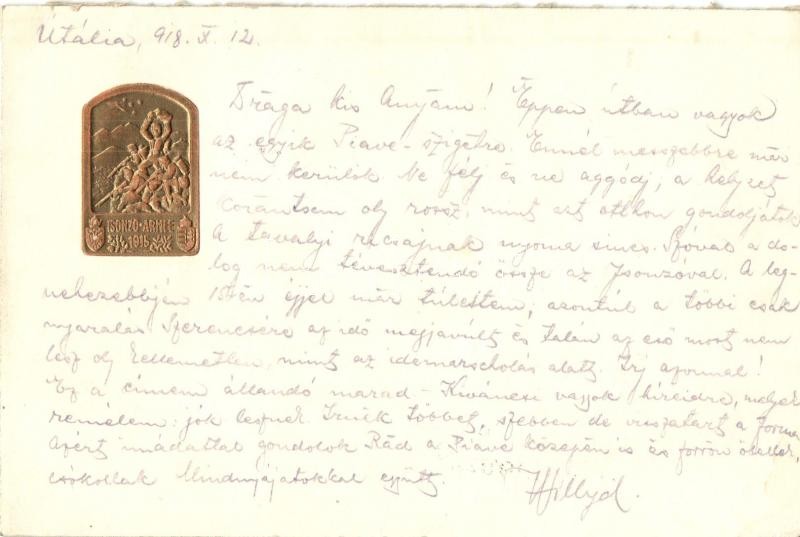 Útália, 918. X. 12.
Drága kis Anyám! Éppen útban vagyok
az egyik Piave-szigetre. Ennél messzebbre már
nem kerülök. Ne félj és ne aggódj, a helyzet
korántsem oly rossz, mint azt otthon gondoljátok
A tavalyi ricsajnak nyoma sincs. Szóval a do-
log nem tévesztendő össze az Isonzóval. A leg-
nehezebbjén 15-én éjjel már túlestem, azontúl a többi csak
nyaralás. Szerencsére az idő megjavult és talán az eső most nem
lesz oly kellemetlen, mint az idemarscholás alatt. Írj azonnal!
Ez a címem állandó marad - Kíváncsi vagyok híreidre, melyek
remélem: jók lesznek. Irnék többet, szebben de visszatart a forma
Azért imádattal gondolok Rád a Piave közepén is és forrón ölellek,
csókollak Mindnyájatokkal együtt. Willyd.
ISONZO-ARMEE
1915